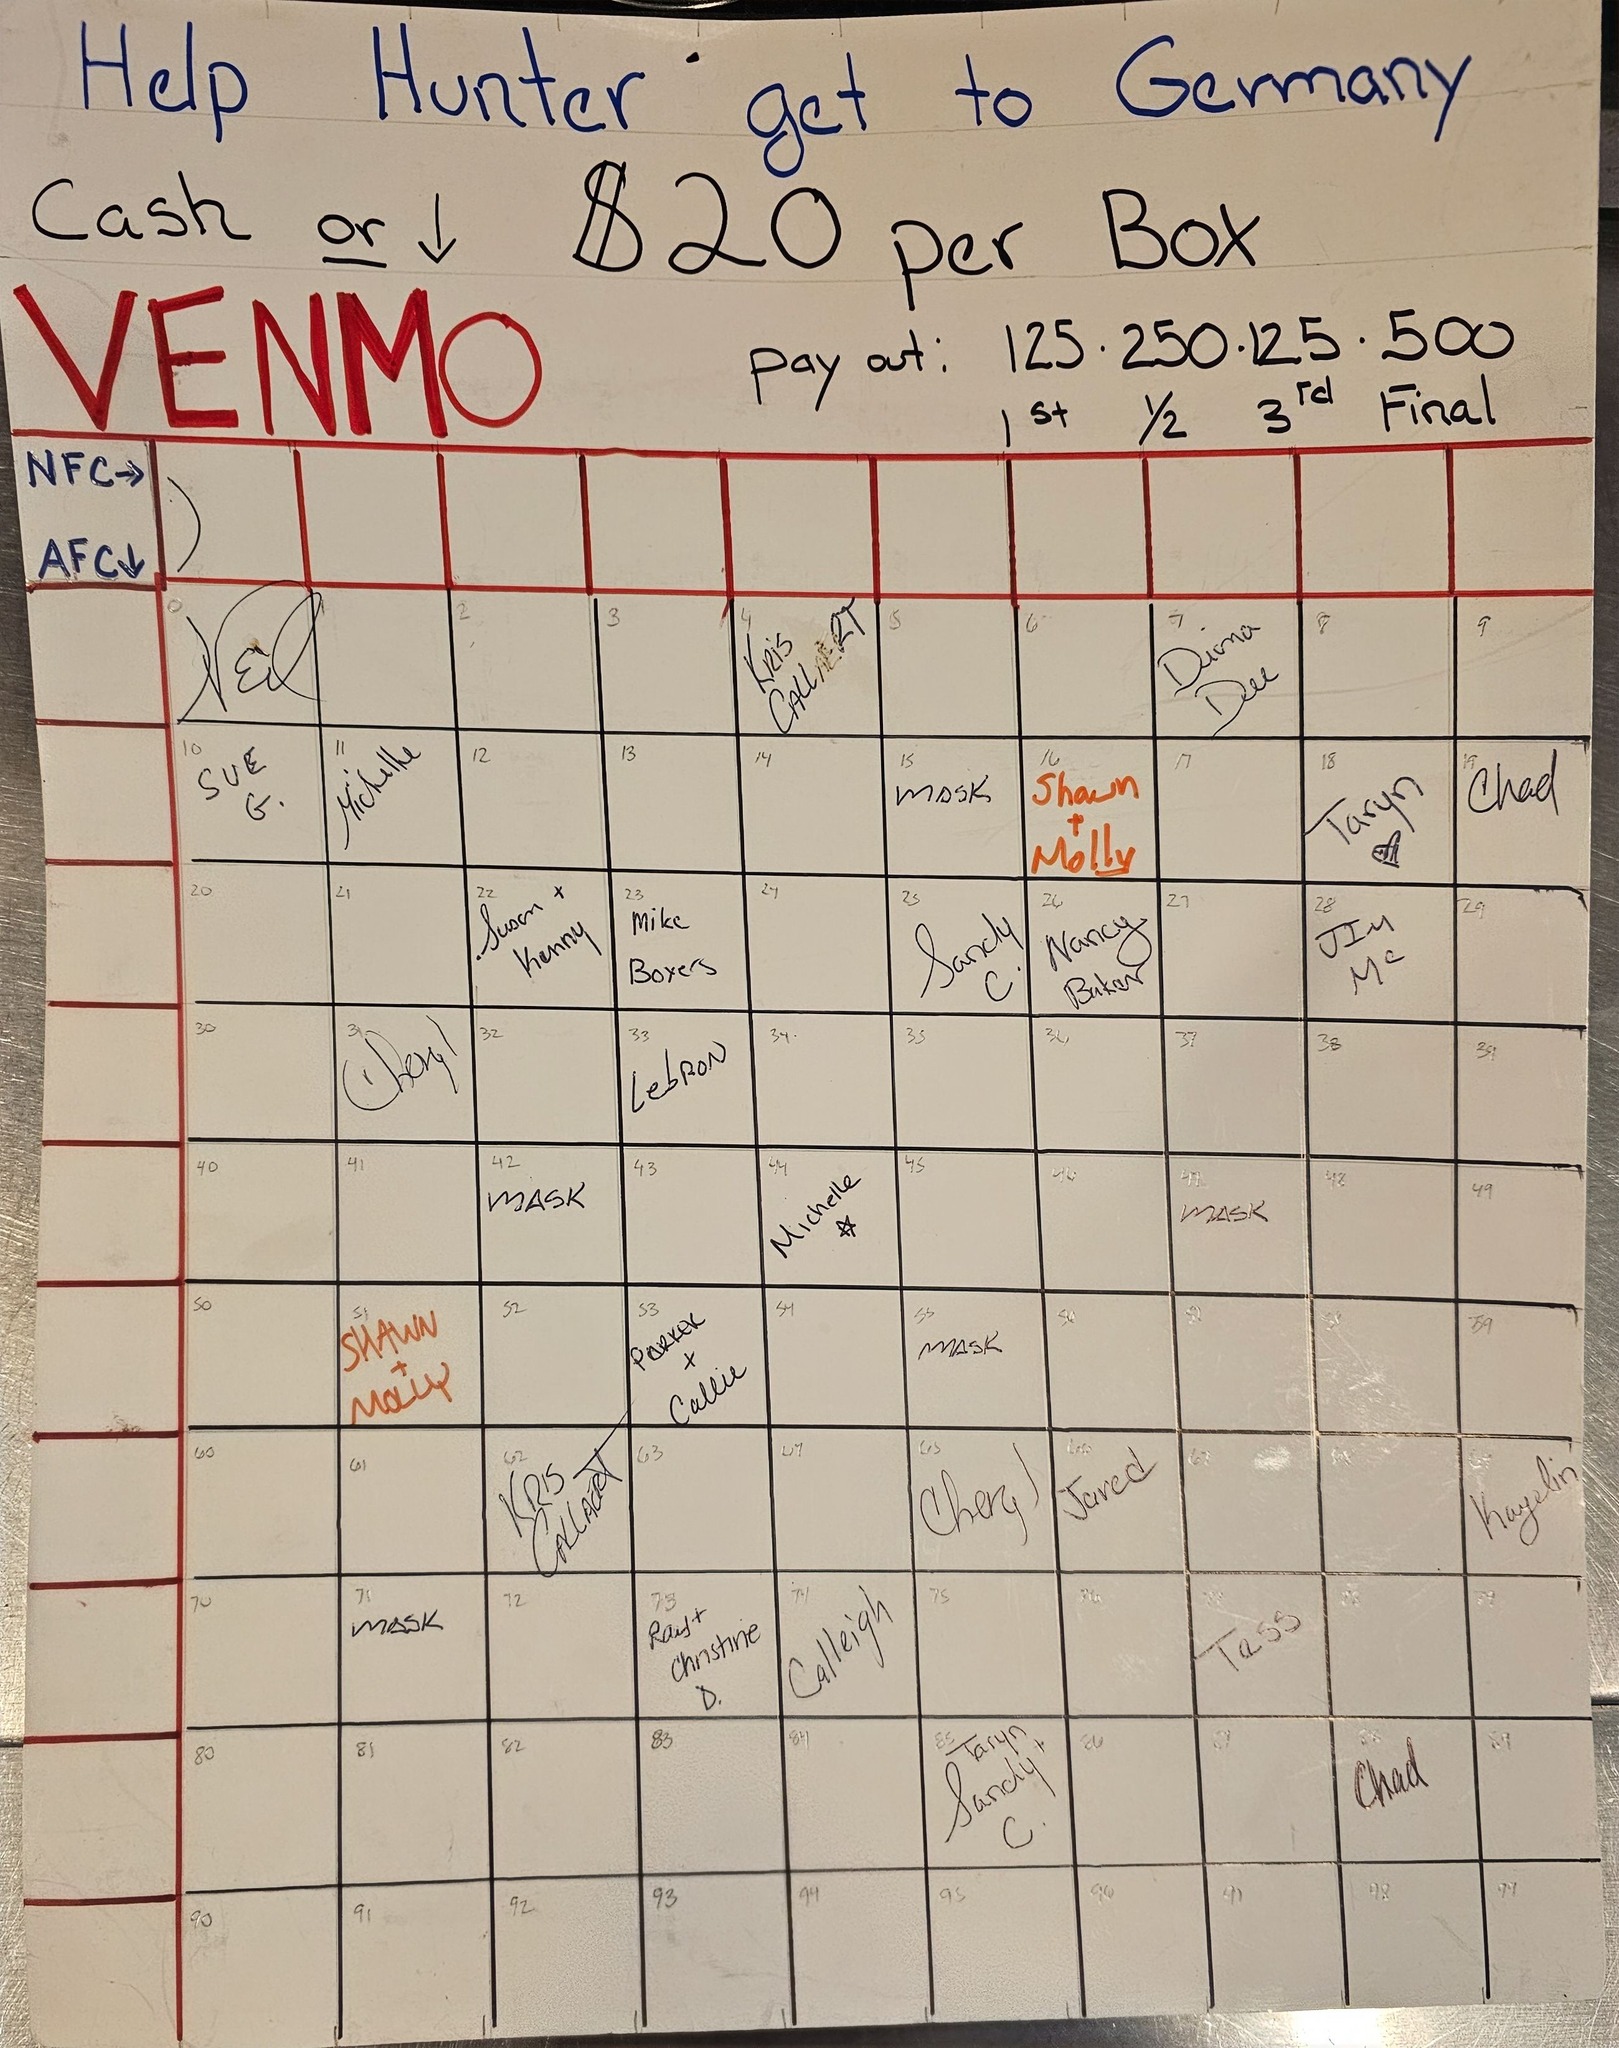 Help Hunter get to Germany
Cash or ↓ $20 per Box
VENMO
pay out: 125 · 250 · 125 · 500
1st 1/2 3rd Final
NFC→
AFC↓
0 1 2 3 4 5 6 7 8 9
Neil KRIS Diana
Dee
10 11 12 13 14 15 16 17 18 19
SUE Michelle MASK Shawn Taryn Chad
G. +
Molly
20 21 22 23 24 25 26 27 28 29
Susan + Mike Sandy Nancy JIM
Kenny Boxers C. Baker Mc
30 31 32 33 34 35 36 37 38 39
Cheryl LebRON
40 41 42 43 44 45 46 47 48 49
MASK Michelle MASK
50 51 52 53 54 55 56 57 58 59
SHAWN PARKER MASK
+ +
Molly Callie
60 61 62 63 64 65 66 67 68 69
KRIS Cheryl Jared Kayelin
70 71 72 73 74 75 76 77 78 79
MASK Ray + Calleigh Tess
Christine
D.
80 81 82 83 84 85 86 87 88 89
Taryn + Chad
Sandy
C.
90 91 92 93 94 95 96 97 98 99